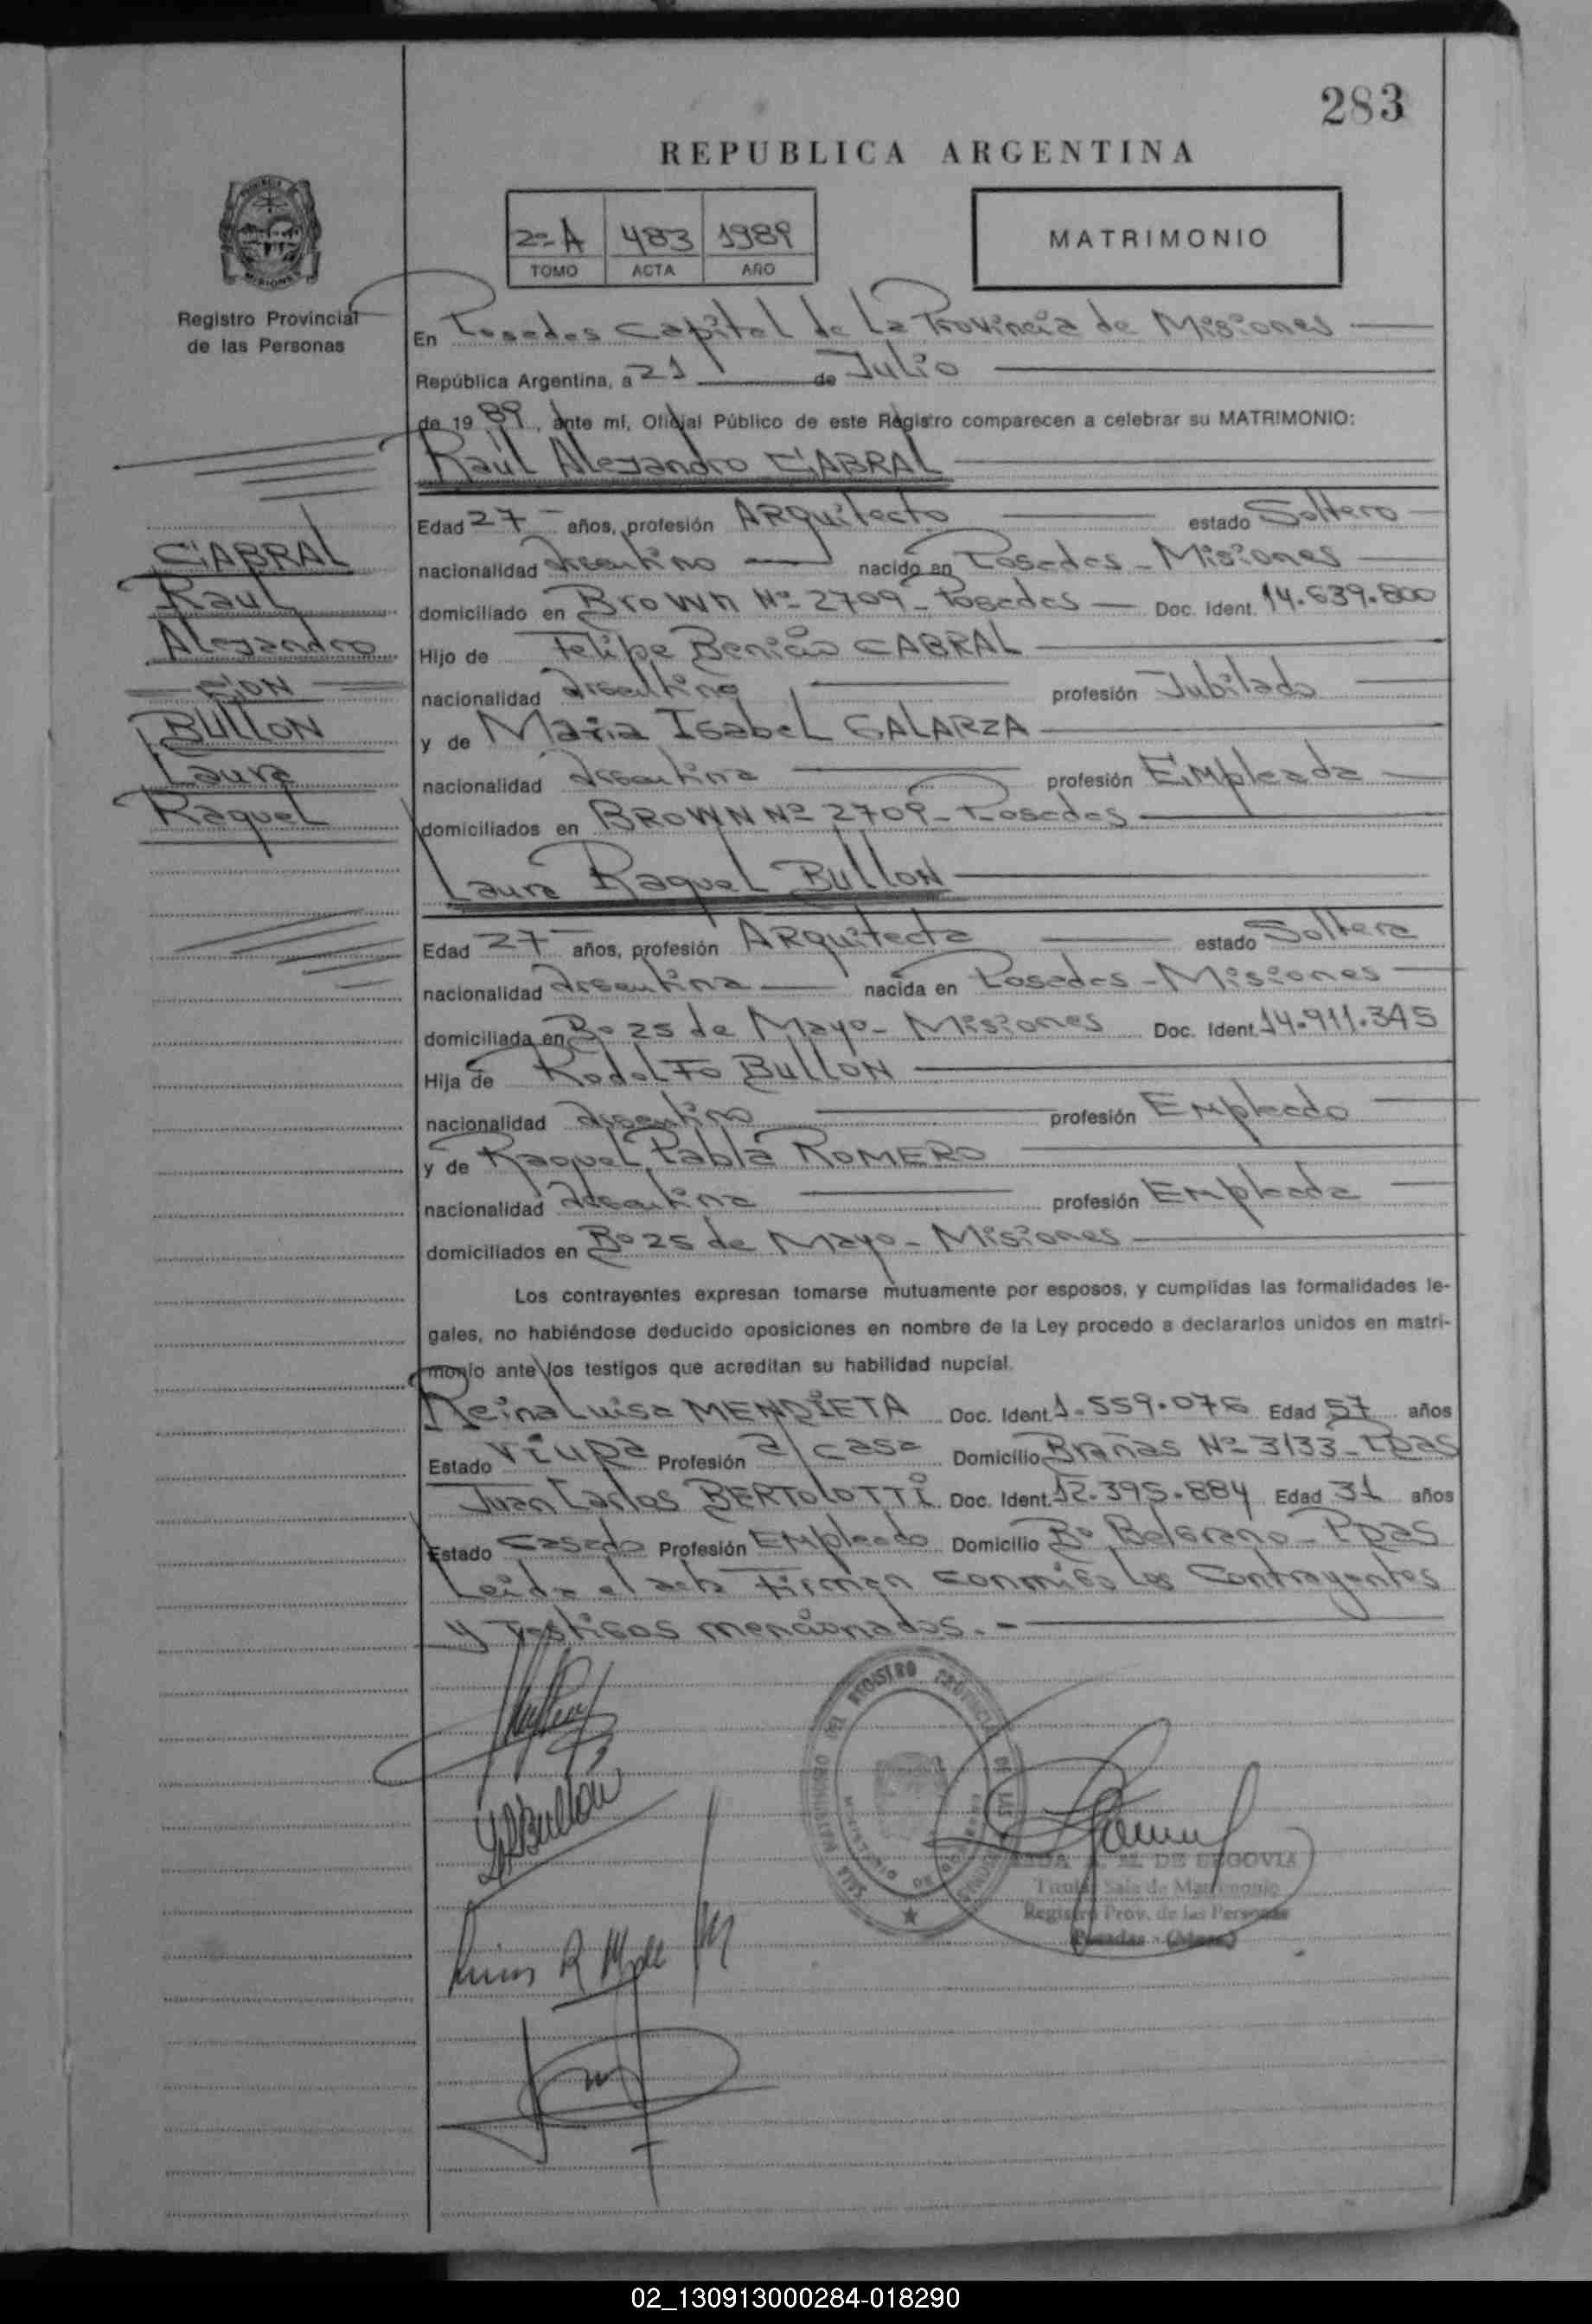 283
REPUBLICA ARGENTINA
2-A 483 1989
TOMO ACTA AÑO
MATRIMONIO
Registro Provincial
de las Personas
En Posadas Capital de La Provincia de Misiones
República Argentina, a 21 de Julio
de 1989, ante mí, Oficial Público de este Registro comparecen a celebrar su MATRIMONIO:
Raúl Alejandro CABRAL
Edad 27 años, profesión ARquitecto estado Soltero
nacionalidad Argentino nacido en Posadas - Misiones
domiciliado en Brown Nº 2709 - Posadas Doc. Ident. 14.639.800
Hijo de Felipe Benicio CABRAL
nacionalidad Argentino profesión Jubilado
y de Maria Isabel GALARZA
nacionalidad Argentina profesión Empleada
domiciliados en BROWN Nº 2709 - Posadas
CABRAL
Raul
Alejandro
CON
BULLON
Laura
Raquel
Laura Raquel BULLON
Edad 27 años, profesión ARquitecta estado Soltera
nacionalidad Argentina nacida en Posadas - Misiones
domiciliada en Bº 25 de Mayo - Misiones Doc. Ident. 14.911.345
Hija de Rodolfo BULLON
nacionalidad Argentino profesión Empleado
y de Raquel Pabla ROMERO
nacionalidad Argentina profesión Empleada
domiciliados en Bº 25 de Mayo - Misiones
Los contrayentes expresan tomarse mutuamente por esposos, y cumplidas las formalidades le-
gales, no habiéndose deducido oposiciones en nombre de la Ley procedo a declararlos unidos en matri-
monio ante los testigos que acreditan su habilidad nupcial.
Reina Luisa MENDIETA Doc. Ident. 1.559.076 Edad 57 años
Estado Viuda Profesión a/casa Domicilio Brañas Nº 3133 - Ppas
Juan Carlos BERTOLOTTI Doc. Ident. 12.395.884 Edad 31 años
Estado Casado Profesión Empleado Domicilio Bº Belgrano - Ppas
Leida el acta Firman conmigo los Contrayentes
y Testigos mencionados. -
LRBullon
DEL REGISTRO PROVINCIAL DE LAS PERSONAS
SALA MATRIMONIO
MINISTERIO DE GOBIERNO
M. DE SEGOVIA
Titular Sala de Matrimonio
Registro Prov. de las Personas
Posadas - (Mnes)
02_130913000284-018290